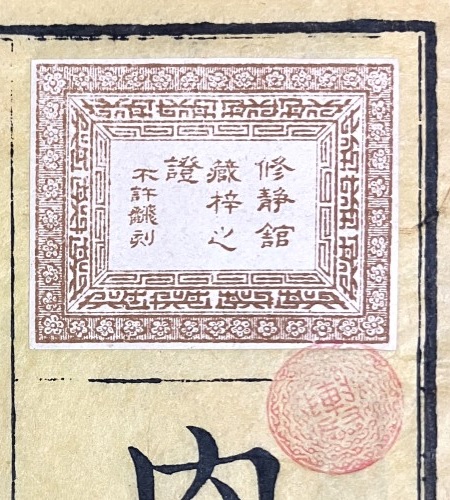 修靜舘
藏梓之
證
不許飜刻
内